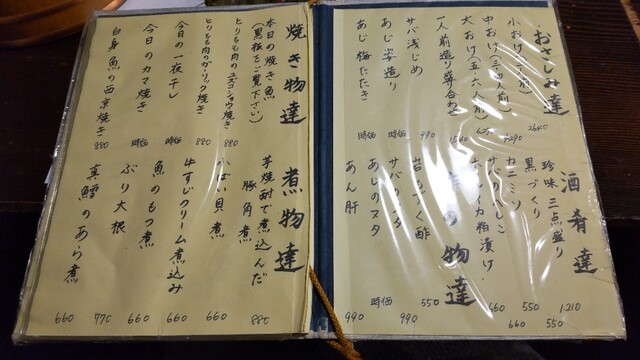 おさしみ達
小おけ(二人前) 2640
中おけ(三、四人前)
大おけ(五、六人前)
一人前造り盛合わせ
サバ浅じめ 990
あじ姿造り 時価
あじ梅たたき 時価
酒肴達
珍味三点盛り 1210
黒づくり 550
カニミソ 550
サバへしこ 660
ホタルイカ粕漬け 660
の物達
岩もずく酢 550
サバのヌタ 990
あじのヌタ 時価
あん肝 990
焼き物達
本日の焼き魚
(黒板をご覧下さい)
とりもも肉のユズコショウ焼き 880
とりもも肉のガーリック焼き 880
今日の一夜干し 時価
今日のカマ焼き 時価
白身魚の西京焼き 880
煮物達
芋焼酎で煮込んだ
豚角煮 880
小ばい貝煮 660
牛すじクリーム煮込み 660
魚のもつ煮 660
ぶり大根 770
真鱈のあら煮 660